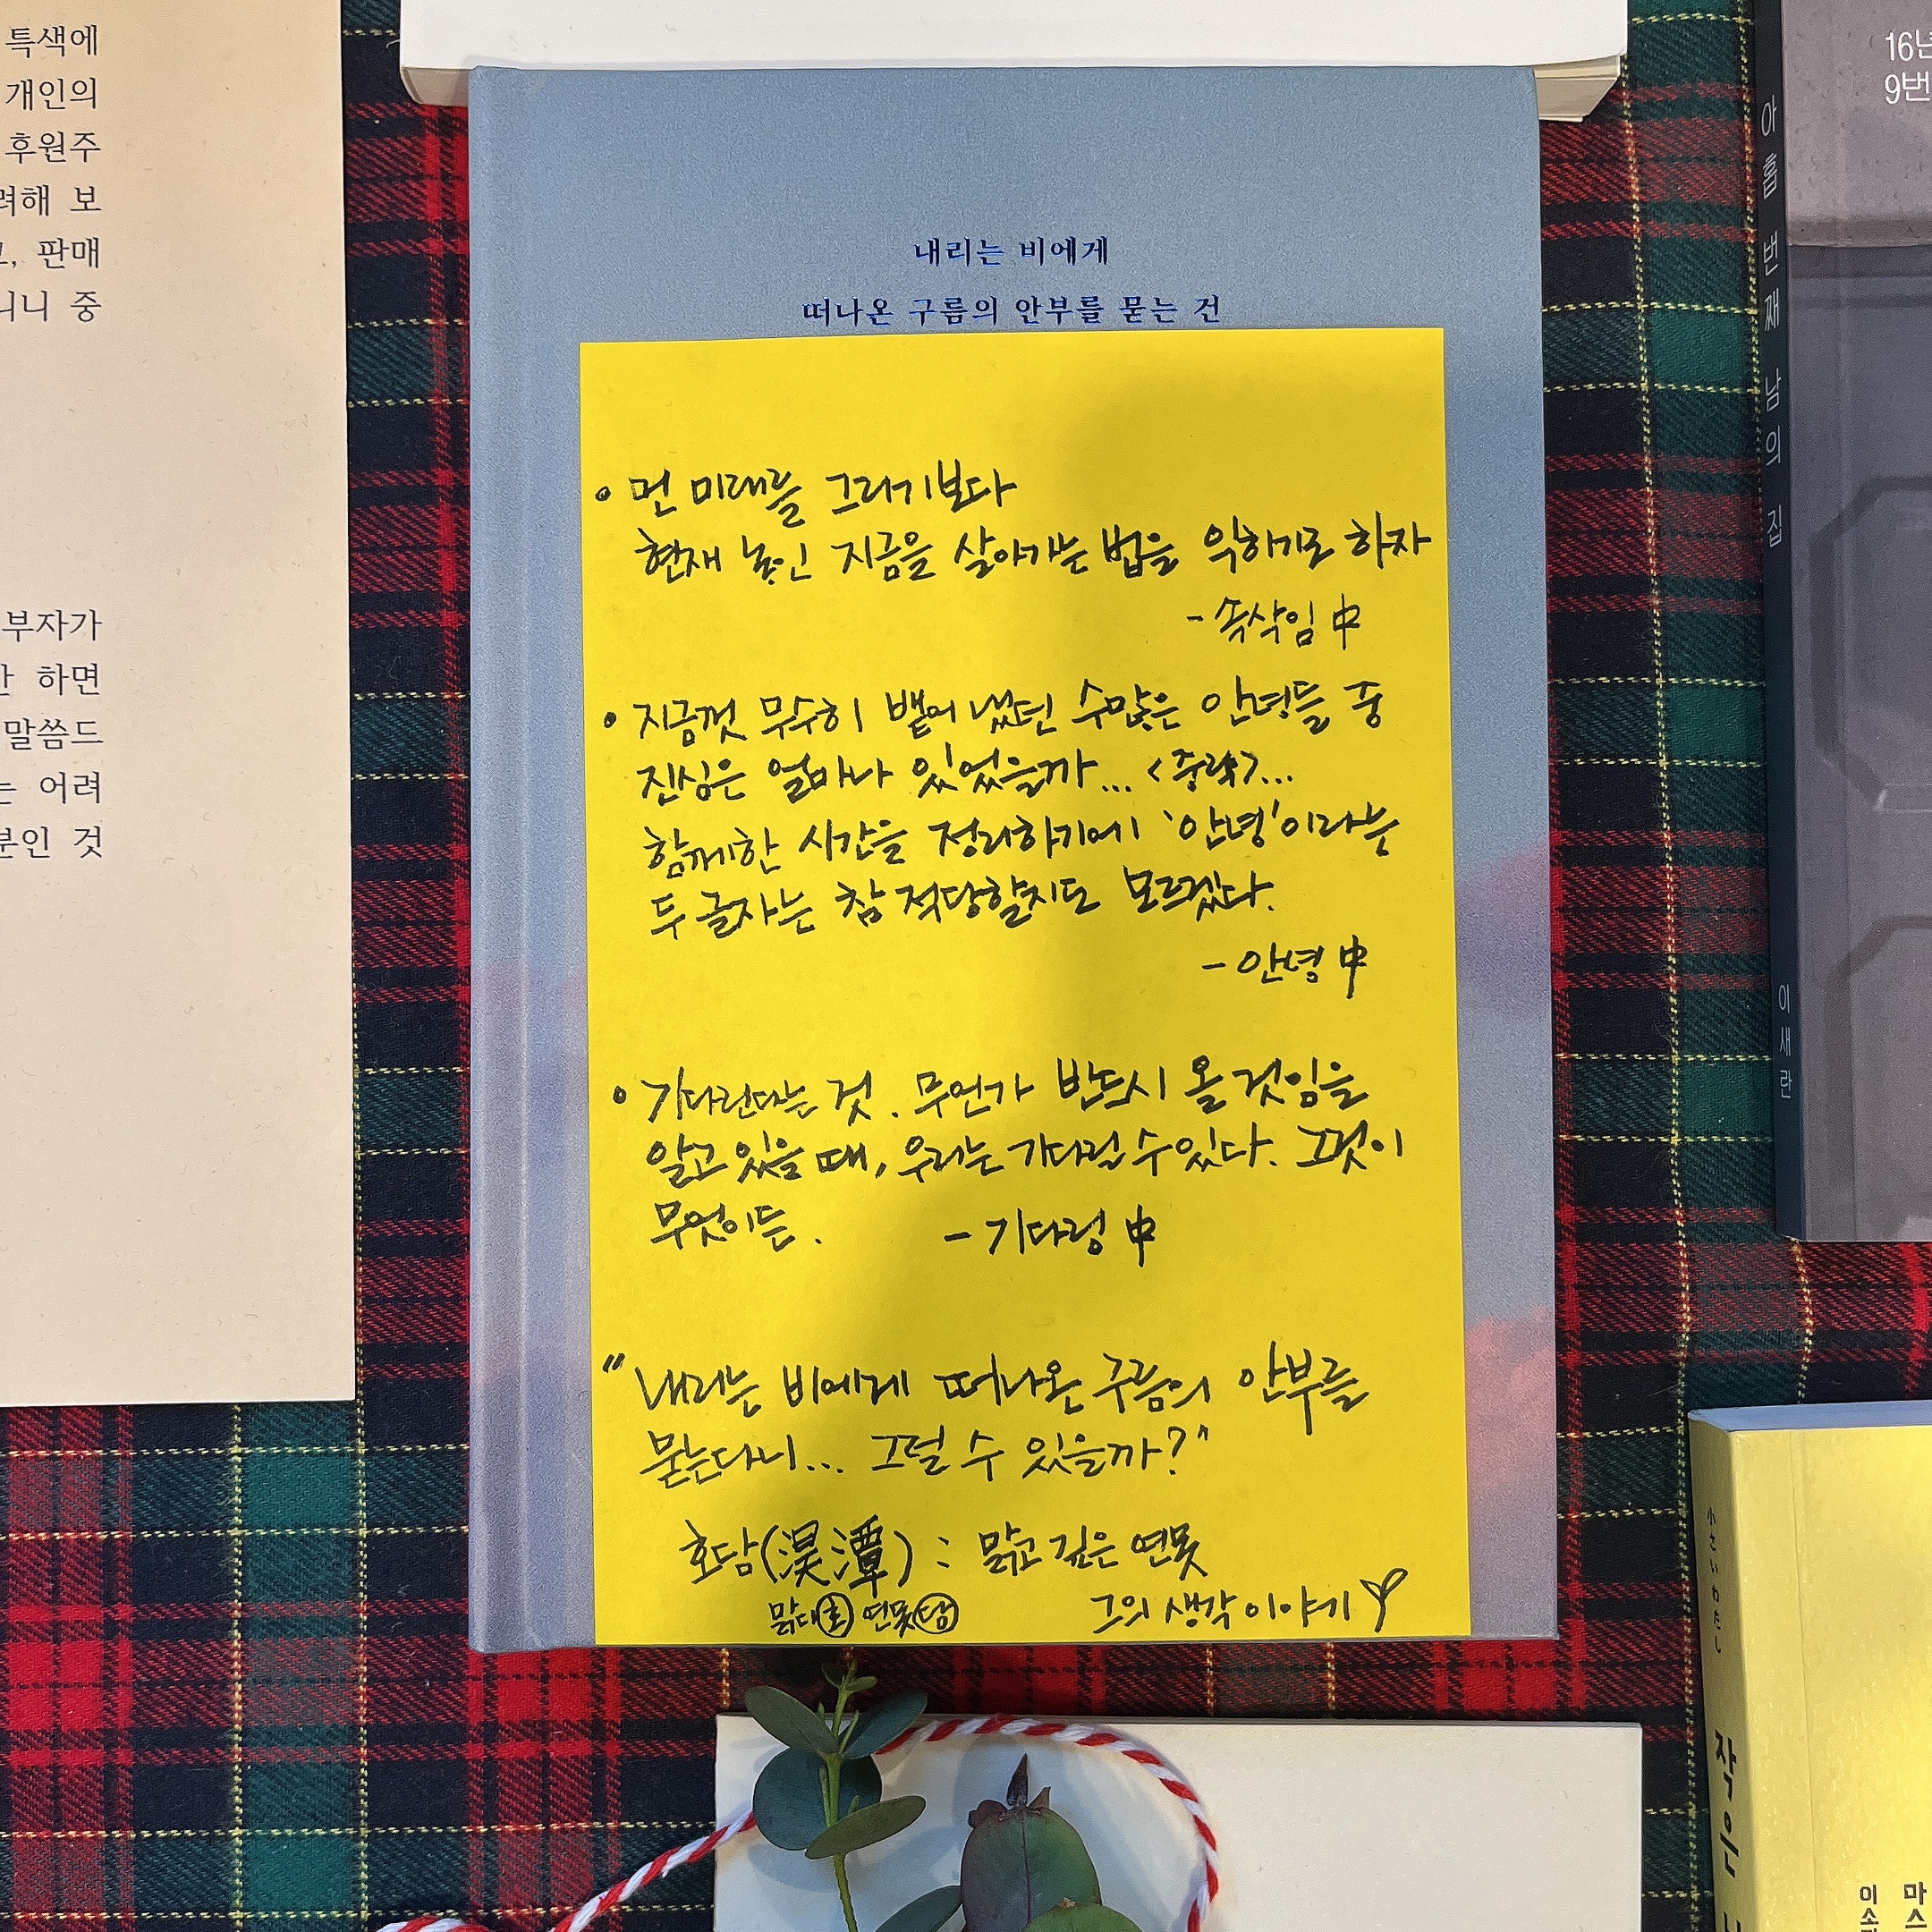 특색에
개인의
후원주
려해 보
판매
니니 중
부자가
하면
말씀드
는 어려
분인 것
내리는 비에게
떠나온 구름의 안부를 묻는 건
• 먼 미래를 그리기보다
현재 놓인 지금을 살아가는 법을 익히기로 하자
- 속삭임 中
• 지금껏 무수히 뱉어 냈던 수많은 안녕들 중
진심은 얼마나 있었을까... <중략>...
함께한 시간을 정리하기에 '안녕'이라는
두 글자는 참 적당할지도 모르겠다.
- 안녕 中
• 기다린다는 것. 무언가 반드시 올 것임을
알고 있을 때, 우리는 기다릴 수 있다. 그것이
무엇이든. - 기다림 中
"내리는 비에게 떠나온 구름의 안부를
묻는다니... 그럴 수 있을까?"
호담(淏潭) : 맑고 깊은 연못
맑다 호 연못 담 그의 생각 이야기
16년
9번
아홉 번째 남의 집
이새란
小さいわたし
작은 나
마스
이소